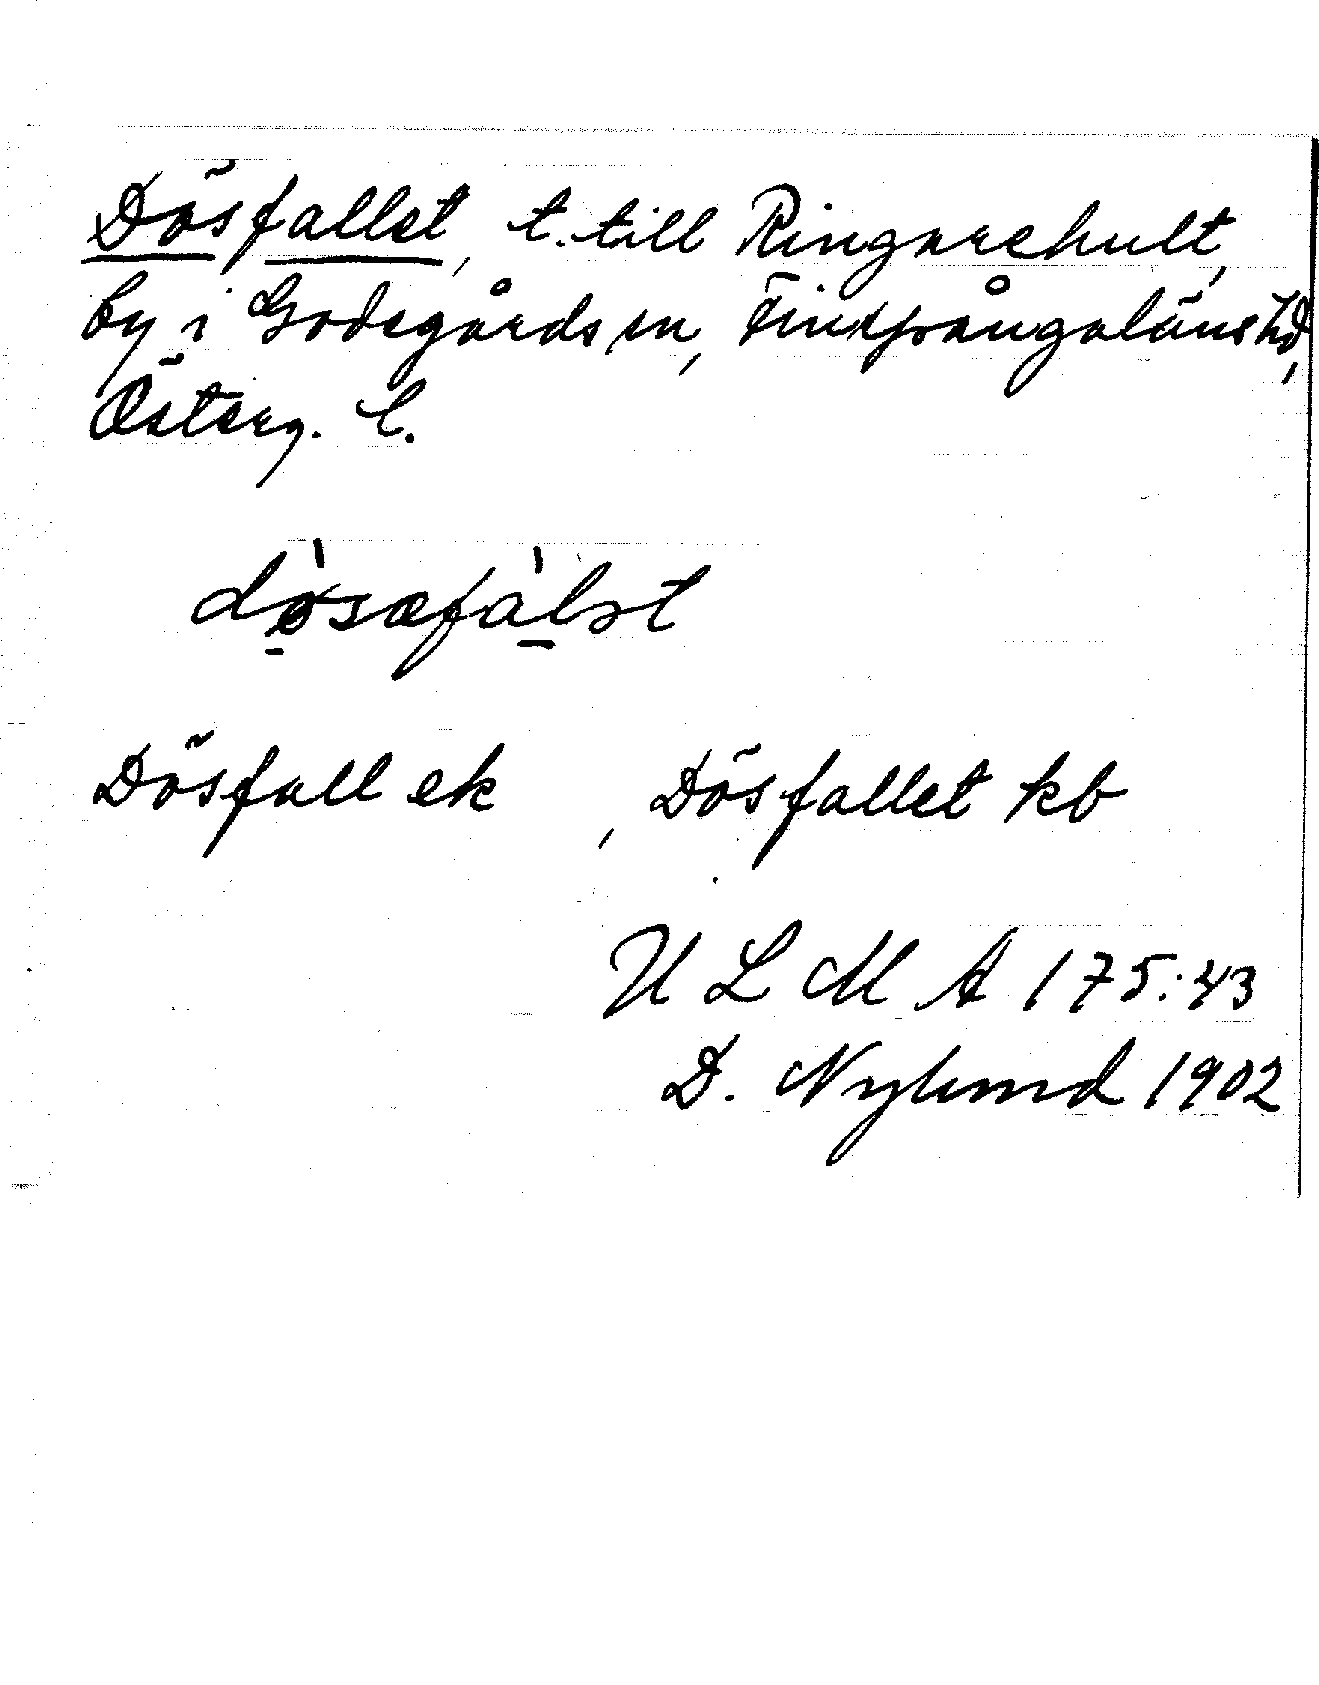 Dösfallet, t. till Ringarehult,
by i Godegårds sn, Finspångaläns hd,
Österg. l.
Dösfall ek , Dösfallet kb
U L M A 175:43
D. Nylund 1902